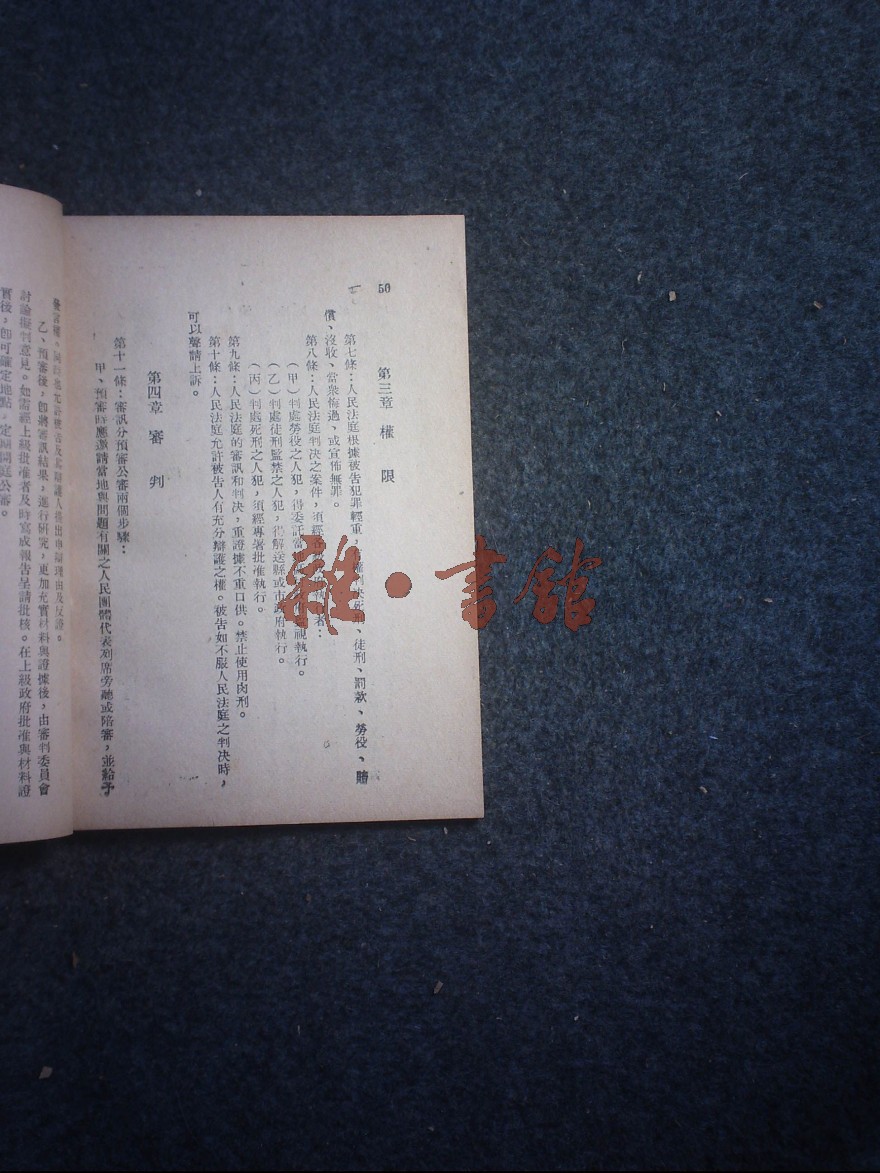 50
第三章 權限
第七條：人民法庭根據被告犯罪輕重，死刑、徒刑、罰款、勞役、賠
償、沒收、當衆悔過、或宣佈無罪。
第八條：人民法庭判决之案件，須經者：
（甲）判處勞役之人犯，得委託當視執行。
（乙）判處徒刑監禁之人犯，得解送縣或市政府執行。
（丙）判處死刑之人犯，須經專署批准執行。
第九條：人民法庭的審訊和判决，重證據不重口供。禁止使用肉刑。
第十條：人民法庭允許被告人有充分辯護之權。被告如不服人民法庭之判决時，
可以聲請上訴。
第四章 審判
第十一條：審訊分預審公審兩個步驟：
甲、預審時應邀請當地與問題有關之人民團體代表列席旁聽或陪審，並給予
發言權。同時也允許被告及其辯護人提出申辯理由及反證。
乙、預審後，卽將審訊結果，進行研究，更加充實材料與證據後，由審判委員會
討論擬判意見。如需經上級批准者及時寫成報告呈請批核。在上級政府批准與材料證
實後，卽可確定地點，定期開庭公審。
雜·書館